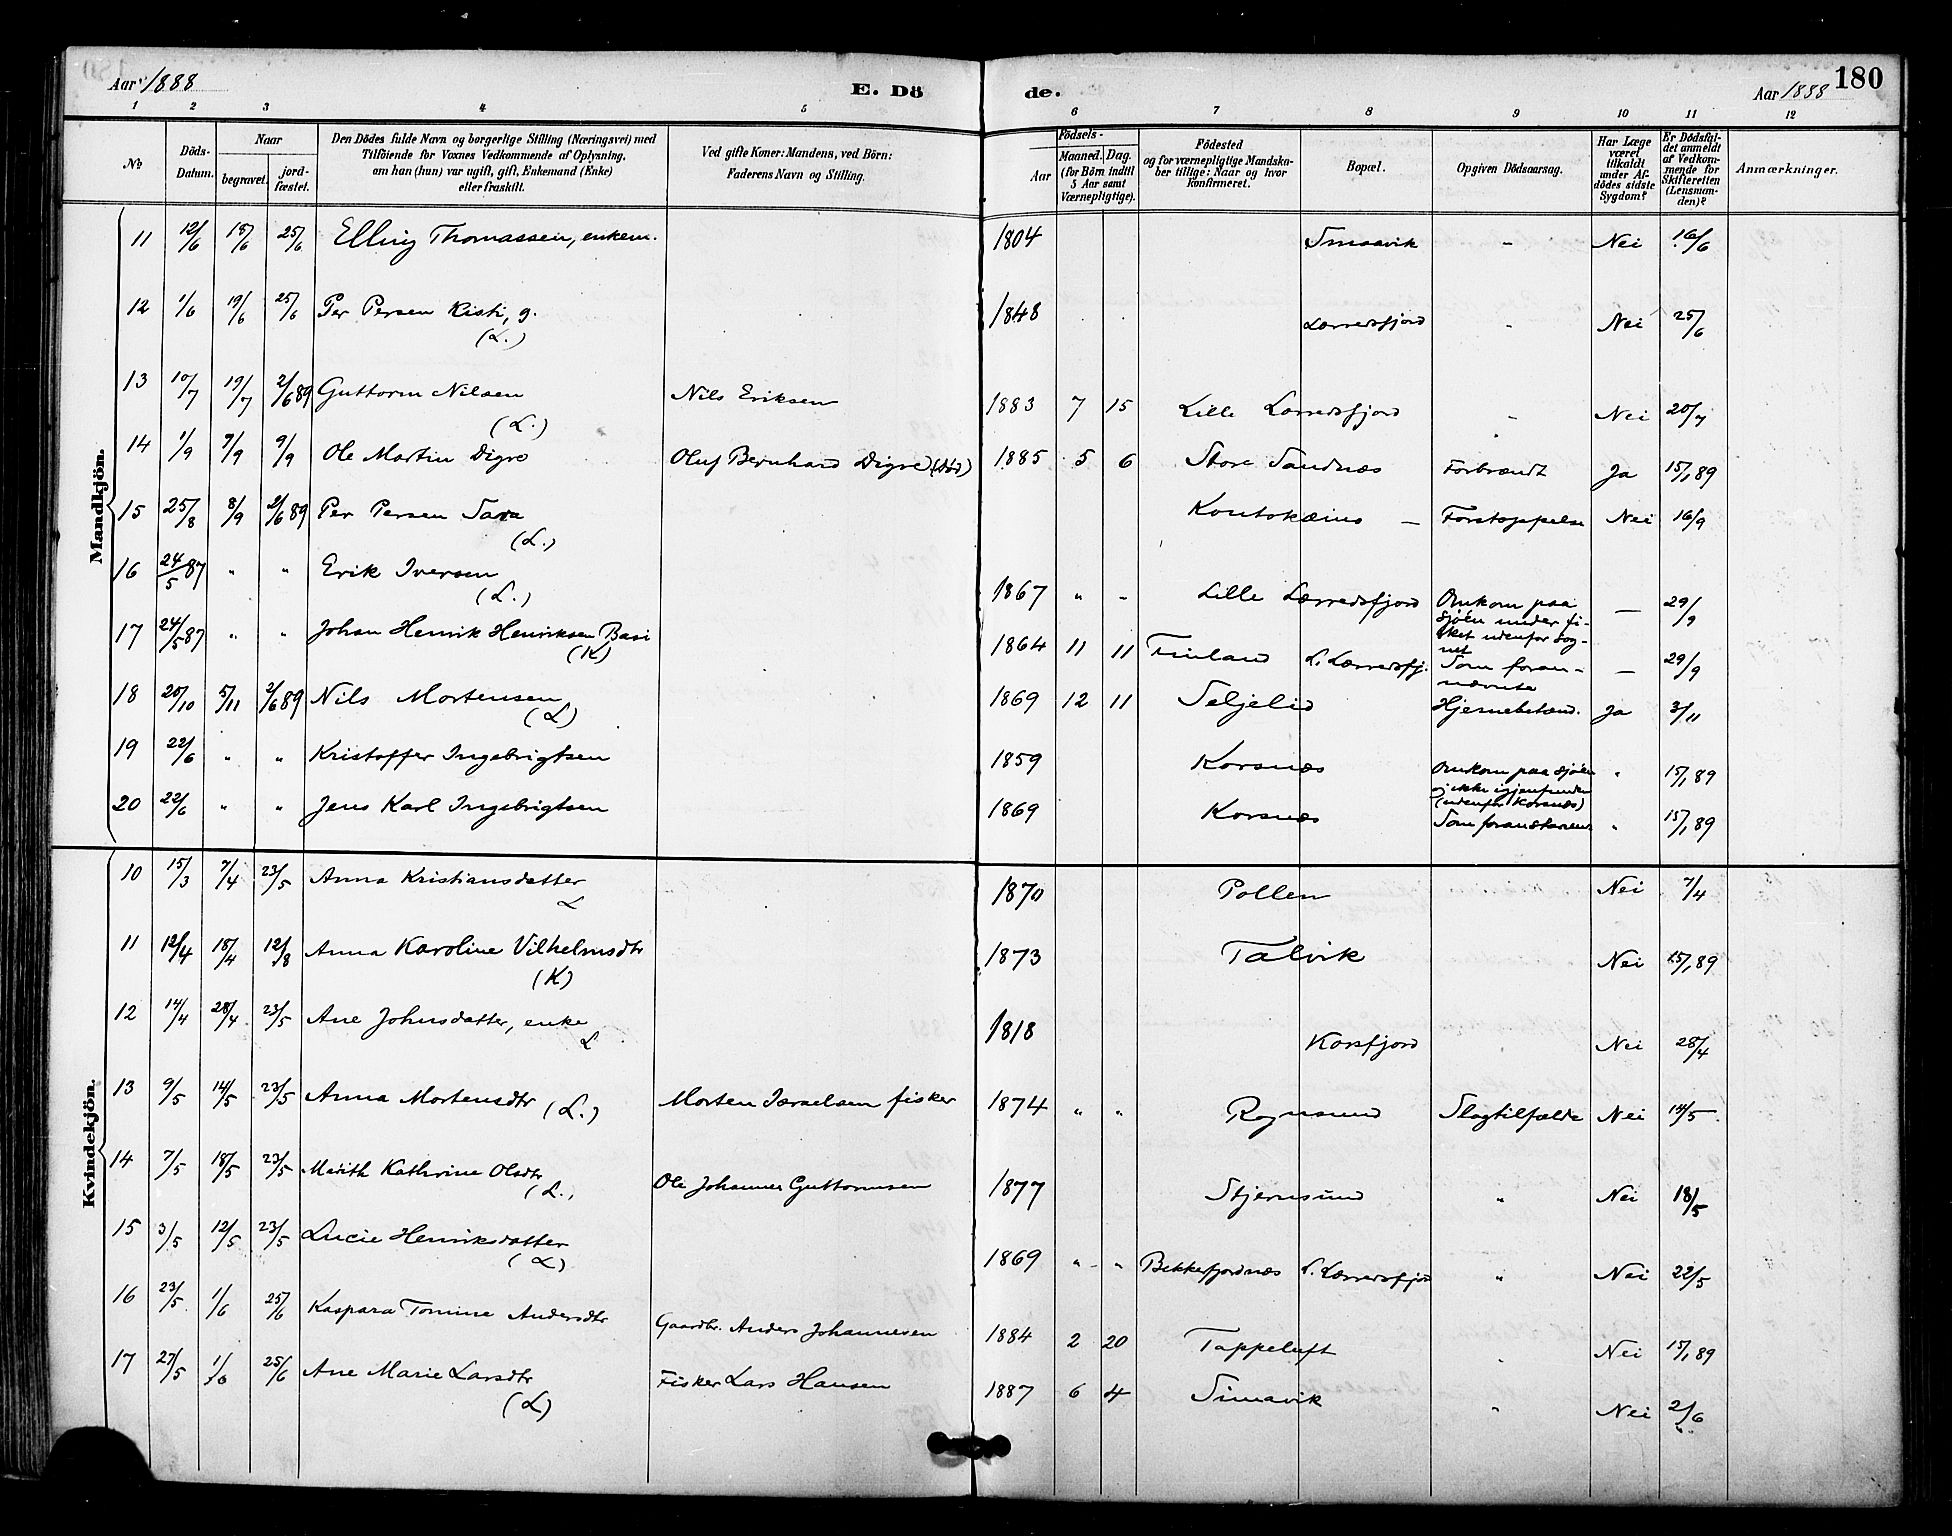 Aar 1888
E. Dö
de.
Aar 1888
180
1 2 3 4 5 6 7 8 9 10 11 12
№
Döds-Datum.
Naar
begravet.
jord-fæstet.
Den Dödes fulde Navn og borgerlige Stilling (Næringsvei) med
Tilföiende for Voxnes Vedkommende af Oplysning,
om han (hun) var ugift, gift, Enkemand (Enke)
eller fraskilt.
Ved gifte Koner: Mandens, ved Börn:
Faderens Navn og Stilling.
Födsels-
Aar
Maaned. Dag.
(for Börn indtil
5 Aar samt
Værnepligtige).
Födested
og for værnepligtige Mandska-
ber tillige: Naar og hvor
konfirmeret.
Bopæl.
Opgiven Dödsaarsag.
Har Læge
været
tilkaldt
under Af-
dödes sidste
Sygdom?
Er Dödsfal-
det anmeldt
af Vedkom-
mende for
Skifteretten
(Lensman-
den)?
Anmærkninger.
Mandkjön.
11 12/6 15/6 25/6 Elling Thomassen, enkem. 1804 Smaavik " Nei 16/6
12 1/6 19/6 25/6 Per Persen Kisti, g. (L.) 1848 Lærredsfjord " Nei 25/6
13 10/7 19/7 2/6 89 Guttorm Nilsen (L.) Nils Eriksen 1883 7 15 Lille Lærredsfjord " Nei 20/7
14 1/9 7/9 9/9 Ole Martin Digre Oluf Bernhard Digre 1885 5 6 Store Sandnæs Forbrændt Ja 15/1 89
15 25/8 8/9 2/6 89 Per Persen Sara (L.) Koutokæino — Forstoppelse Nei 16/9
16 24/5 87 " " Erik Iversen (L.) 1867 " " Lille Lærredsfjord Omkom paa
sjöen under fi-
sket udenfor sog-
net — 29/9
17 24/5 87 " " Johan Henrik Henriksen Basi (K) 1864 11 11 Finland L. Lærredsfj. Som foran-
nævnte — 29/9
18 20/10 5/11 2/6 89 Nils Mortensen (L) 1869 12 11 Seljelid Hjernebetænd. Ja 3/11
19 22/6 " " Kristoffer Ingebrigtsen 1859 Korsnæs Omkom paa sjöen
og ikke igjenfunden
(udenfor Korsnæs) " 15/1 89
20 22/6 " " Jens Karl Ingebrigtsen 1869 Korsnæs Som foranstaaende " 15/1 89
Kvindekjön.
10 15/3 7/4 23/5 Anna Kristiansdatter L 1870 Pollen Nei 7/4
11 12/4 18/4 12/8 Anna Karoline Vilhelmsdtr (K) 1873 Talvik Nei 15/1 89
12 14/4 28/4 23/5 Ane Johnsdatter, enke L 1818 Korsfjord Nei 28/4
13 9/5 14/5 23/5 Anna Mortensdtr (L.) Morten Israelsen fisker 1874 " " Rognsund Slagtilfælde Nei 14/5
14 7/5 18/5 23/5 Marith Kathrine Olsdtr (L. Ole Johannes Guttormsen 1877 Stjernsund " Nei 18/5
15 3/5 12/5 23/5 Lucie Henriksdatter (L) 1869 " " Bekkefjordnæs L. Lærredsfjord " Nei 22/5
16 23/5 1/6 25/6 Kaspara Tomine Andersdtr Gaardbr. Anders Johannesen 1884 2 20 Tappeluft " Nei 15/1 89
17 27/5 1/6 25/6 Ane Marie Larsdtr (L) Fisker Lars Hansen 1887 6 4 Simavik " Nei 2/6